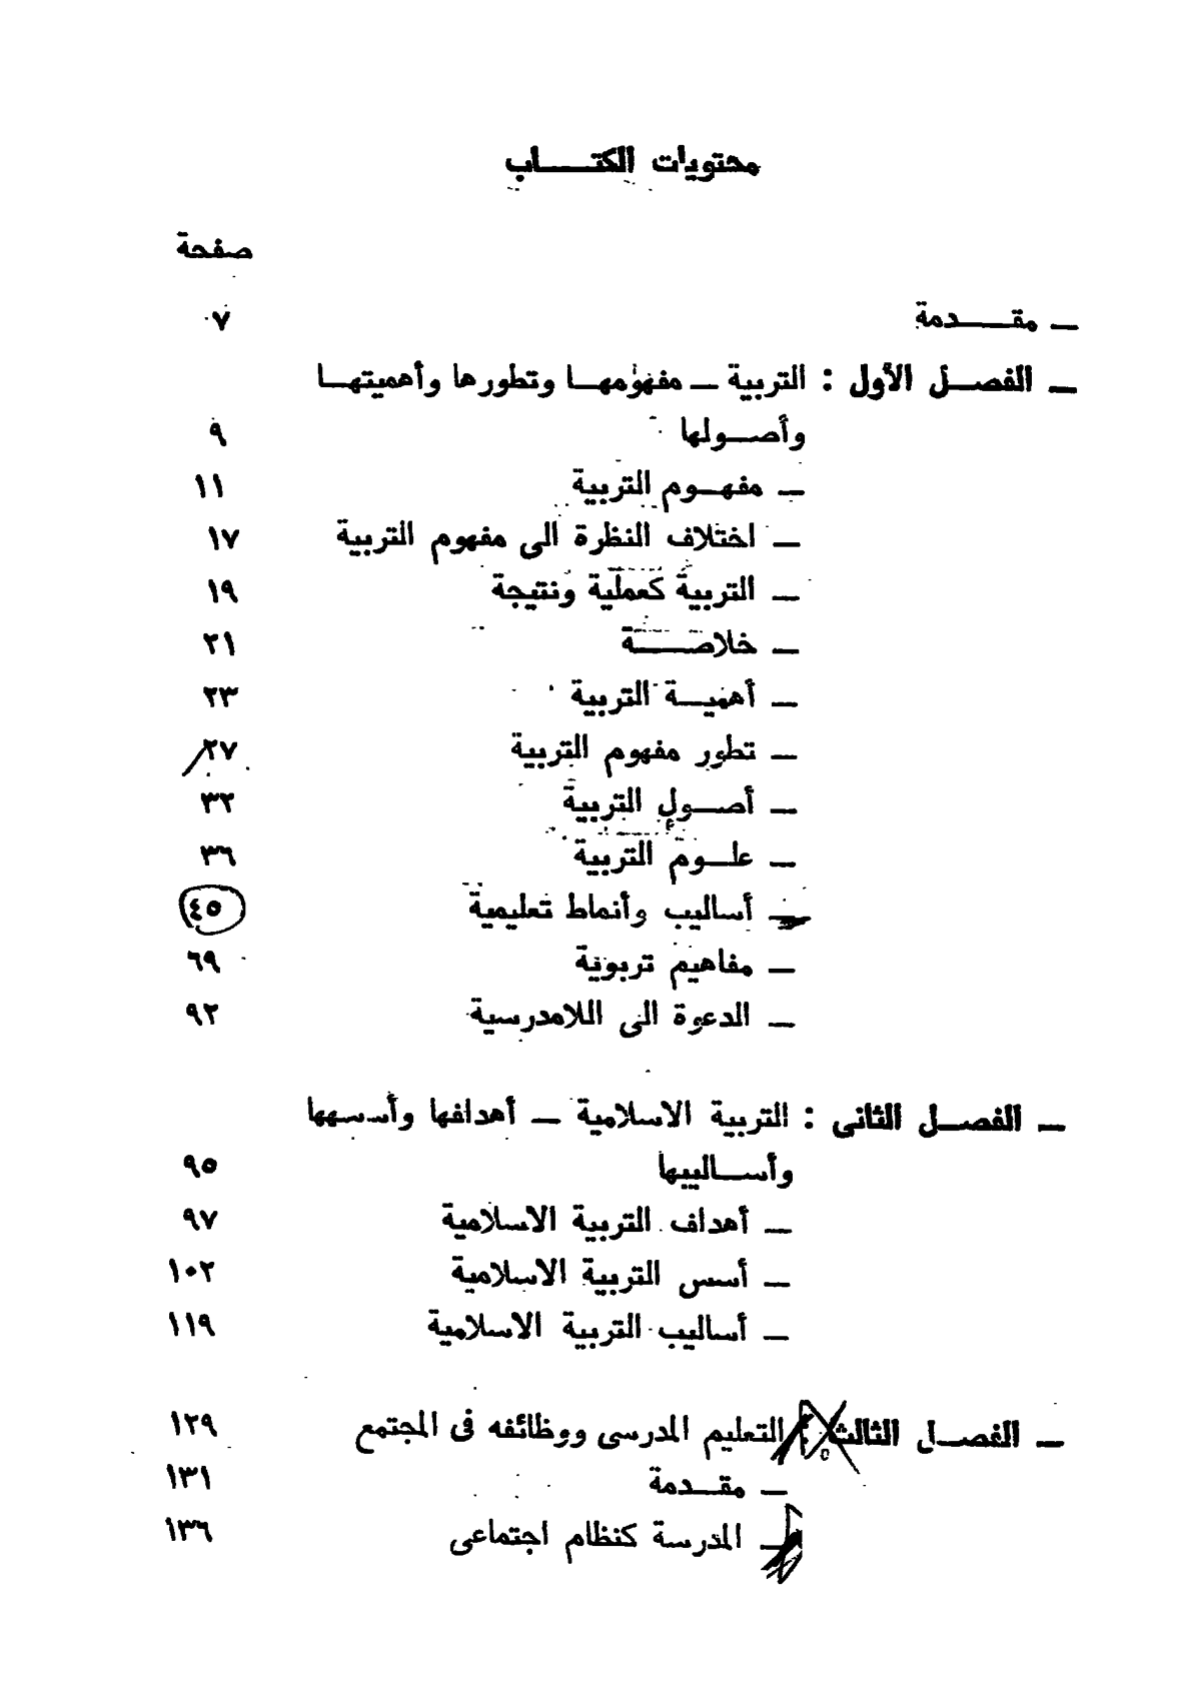 محتويات الكتـــــاب
صفحة
ــ مقـــــدمة ٧
ــ الفصـــل الأول : التربية ــ مفهومهـــا وتطورها وأهميتهـــا
وأصـــولها ٩
ــ مفهـــوم التربية ١١
ــ اختلاف النظرة الى مفهوم التربية ١٧
ــ التربية كعملية ونتيجة ١٩
ــ خلاصـــــة ٢١
ــ أهميـــة التربية ٢٣
ــ تطور مفهوم التربية ٢٧
ــ أصـــول التربية ٣٢
ــ علـــوم التربية ٣٦
ــ أساليب وأنماط تعليمية ٤٥
ــ مفاهيم تربوية ٦٩
ــ الدعوة الى اللامدرسية ٩٢
ــ الفصـــل الثانى : التربية الاسلامية ــ أهدافها وأسسهها
وأســـالييها ٩٥
ــ أهداف التربية الاسلامية ٩٧
ــ أسس التربية الاسلامية ١٠٢
ــ أساليب التربية الاسلامية ١١٩
ــ الفصـــل الثالث : التعليم المدرسى ووظائفه فى المجتمع ١٢٩
ــ مقـــدمة ١٣١
ــ المدرسة كنظام اجتماعى ١٣٦